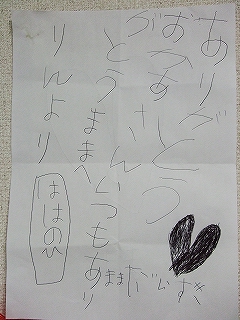 ありがとう
おかあさん
いつもあり
がとう
ままへ
りんより
ははのひ
まませだいすき